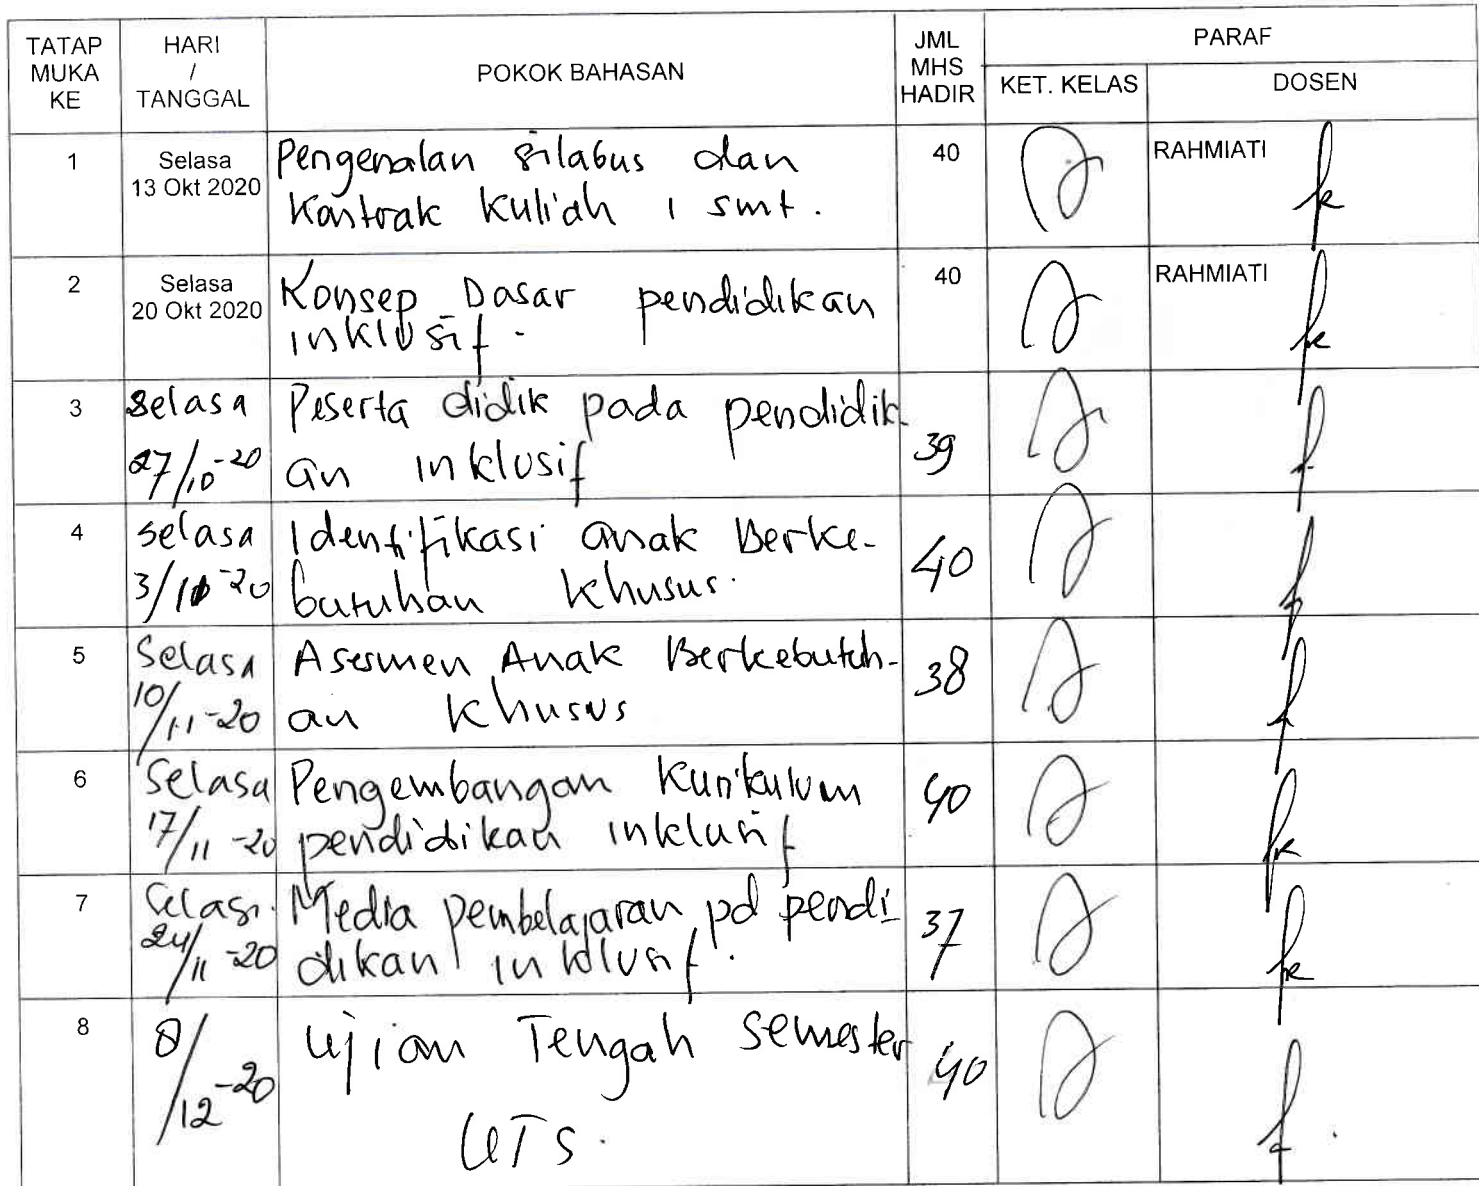 TATAP MUKA KE
HARI / TANGGAL
POKOK BAHASAN
JML MHS HADIR
PARAF
KET. KELAS
DOSEN
1
Selasa
13 Okt 2020
Pengenalan silabus dan
Kontrak kuliah 1 smt.
40
RAHMIATI
2
Selasa
20 Okt 2020
Konsep Dasar pendidikan
inklusif.
40
RAHMIATI
3
Selasa
27/10-20
Peserta didik pada pendidik-
an inklusif
39
4
selasa
3/11-20
Identifikasi anak Berke-
butuhan khusus.
40
5
Selasa
10/11-20
Asesmen Anak Berkebutuh-
an khusus
38
6
Selasa
17/11-20
Pengembangan Kurikulum
pendidikan inklusif
40
7
Selasa
24/11-20
Media pembelajaran pd pendi
dikan inklusif.
37
8
8/12-20
Ujian Tengah Semester
UTS.
40